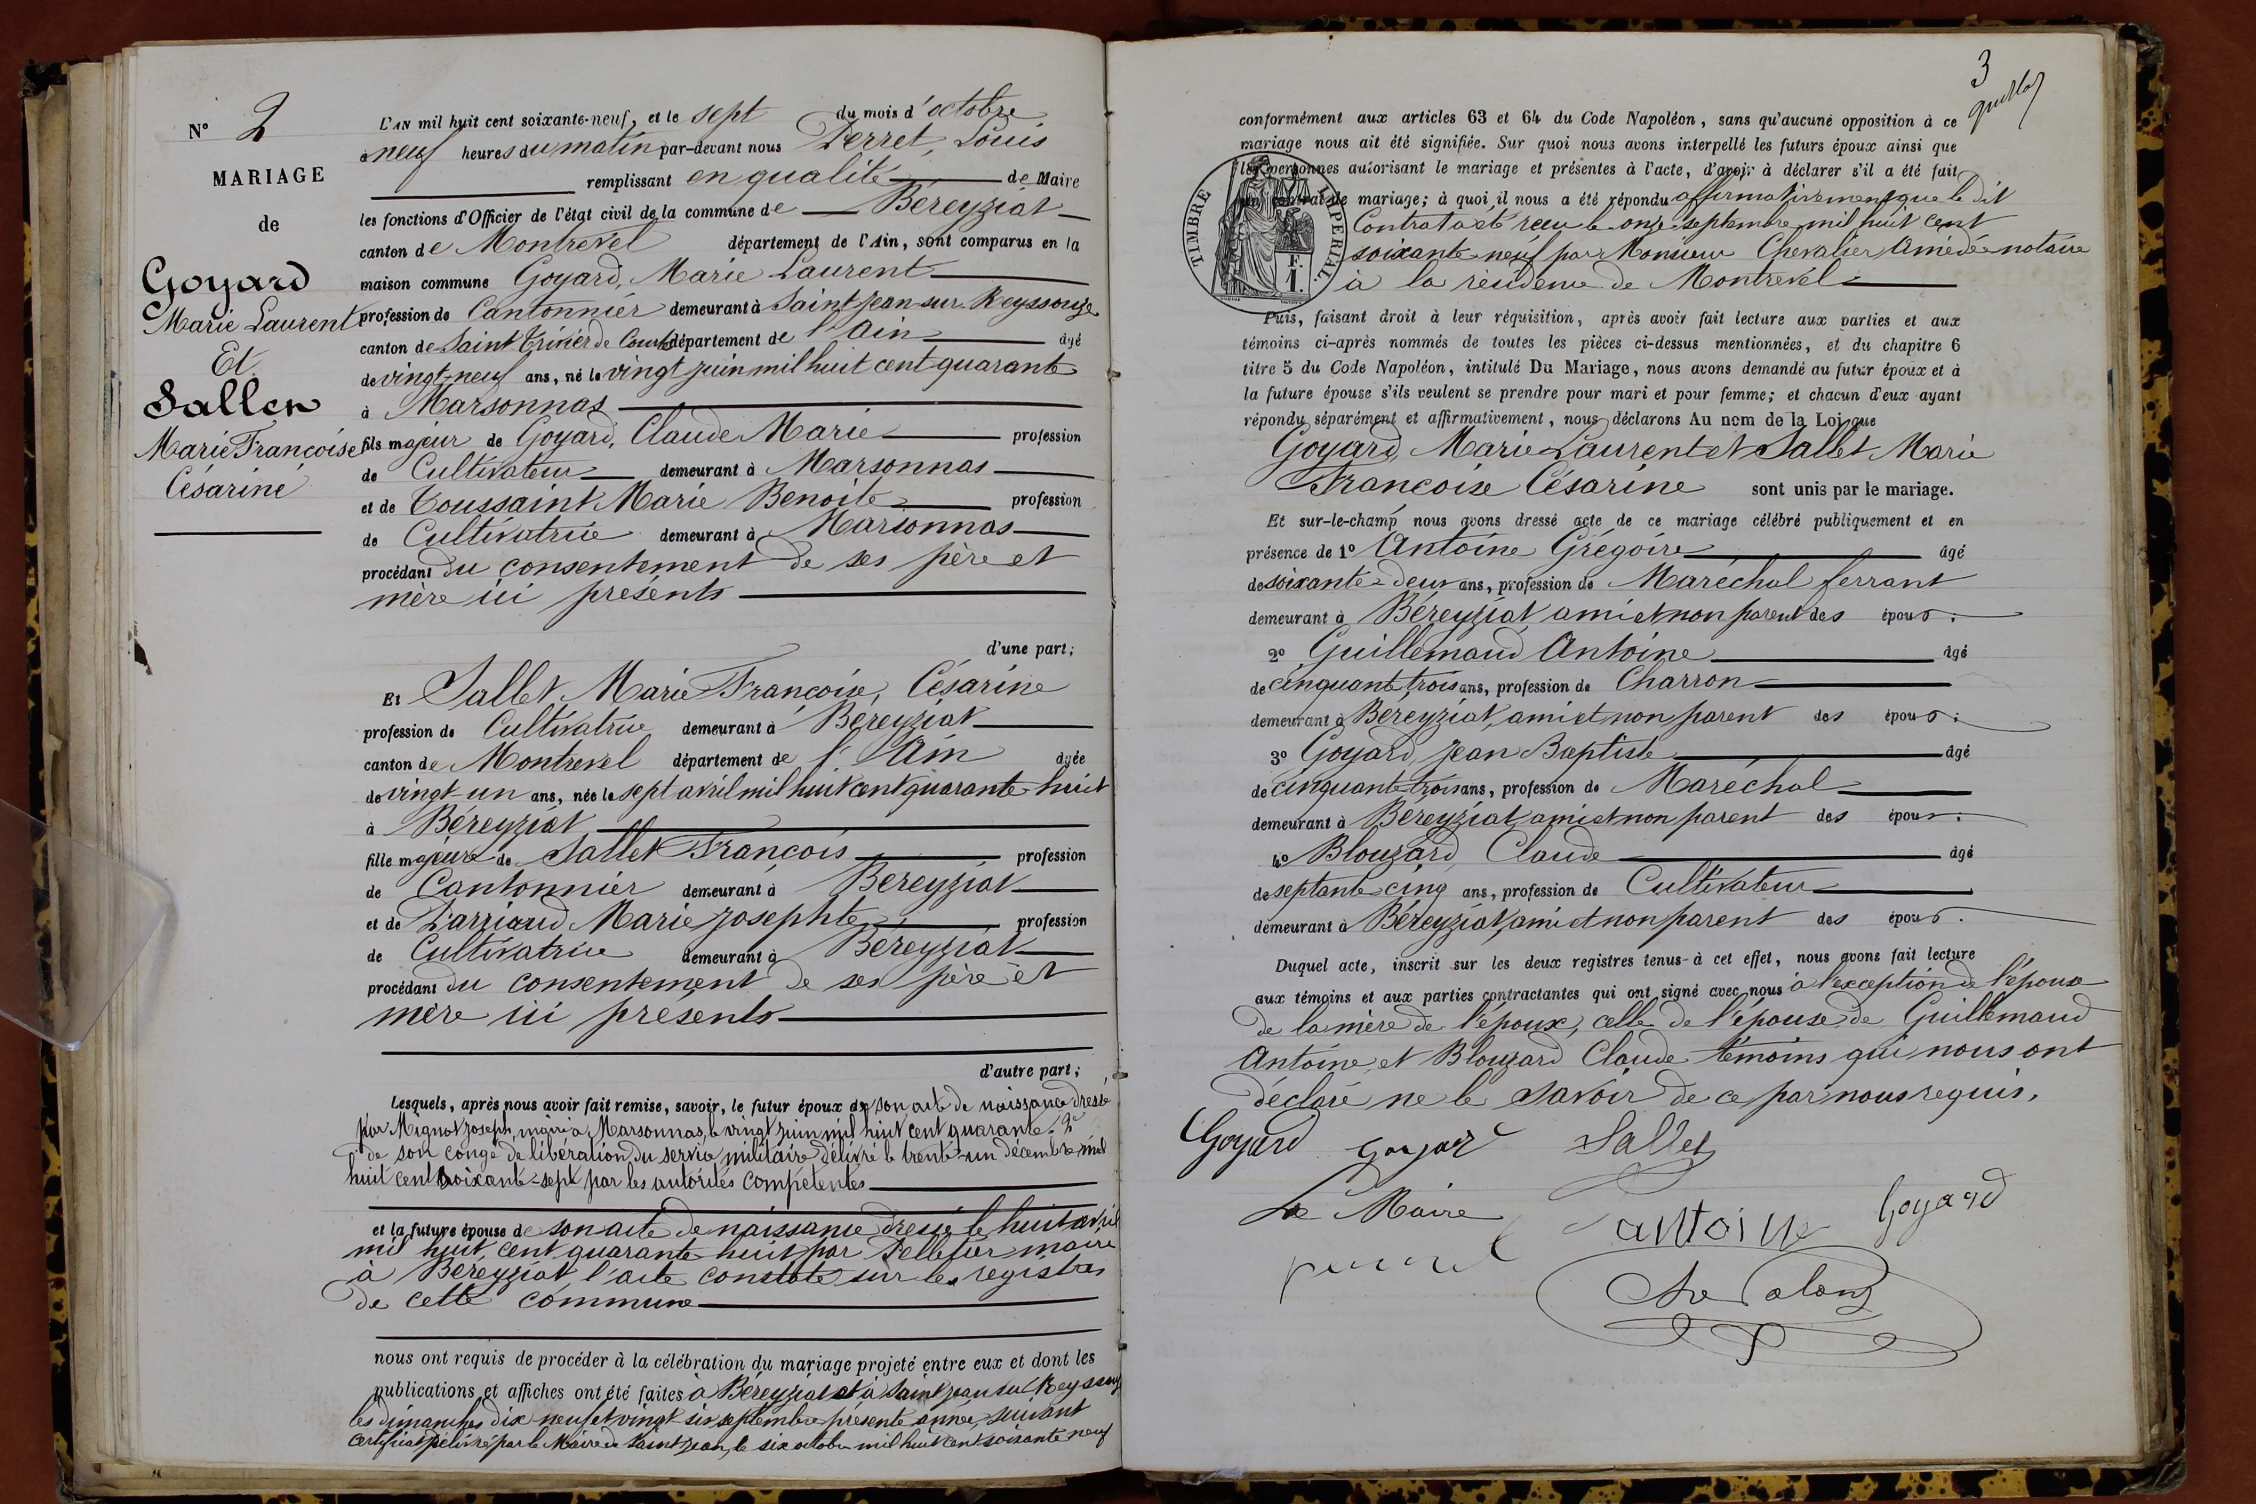 N° 2
MARIAGE
de
Goyard
Marie Laurent
Et
Sallet
Marie Françoise
Césarine
L'AN mil huit cent soixante-neuf, et le sept du mois d'octobre
à neuf heures du matin par-devant nous Perret, Louis
remplissant en qualité de Maire
les fonctions d'Officier de l'état civil de la commune de Béreyziat
canton de Montrevel département de l'Ain, sont comparus en la
maison commune Goyard, Marie Laurent
profession de Cantonnier demeurant à Saint Jean sur Reyssouze
canton de Saint Trivier de Courtes département de l'Ain âgé
de vingt-neuf ans, né le vingt juin mil huit cent quarante
à Marsonnas
fils majeur de Goyard, Claude Marie profession
de Cultivateur demeurant à Marsonnas
et de Toussaint Marie Benoite profession
de Cultivatrice demeurant à Marsonnas
procédant du consentement de ses père et
mère ici présents
d'une part;
Et Sallet Marie Françoise, Césarine
profession de Cultivatrice demeurant à Béreyziat
canton de Montrevel département de l'Ain âgée
de vingt-un ans, née le sept avril mil huit cent quarante-huit
à Béreyziat
fille majeure de Sallet François profession
de Cantonnier demeurant à Béreyziat
et de Darriaud Marie Josephte profession
de Cultivatrice demeurant à Béreyziat
procédant du consentement de ses père et
mère ici présents
d'autre part;
Lesquels, après nous avoir fait remise, savoir, le futur époux de son acte de naissance dressé
par Mignot Joseph, maire à Marsonnas, le vingt juin mil huit cent quarante. 2°
de son congé de libération du service militaire délivré le trente-un décembre mil
huit cent soixante-sept par les autorités compétentes
et la future épouse de son acte de naissance dressé le huit avril
mil huit cent quarante-huit par Pelletier maire
à Béreyziat, l'acte constate sur les registres
de cette commune
nous ont requis de procéder à la célébration du mariage projeté entre eux et dont les
publications et affiches ont été faites à Béreyziat et à Saint Jean sur Reyssouze
les dimanches dix neuf et vingt-six septembre présente année, suivant
certificat délivré par le Maire de Saint Jean, le six octobre mil huit cent soixante neuf
3
conformément aux articles 63 et 64 du Code Napoléon, sans qu'aucune opposition à ce
mariage nous ait été signifiée. Sur quoi nous avons interpellé les futurs époux ainsi que
les personnes autorisant le mariage et présentes à l'acte, d'avoir à déclarer s'il a été fait
un contrat de mariage; à quoi il nous a été répondu affirmativement que le dit
Contrat a été reçu le onze septembre mil huit cent
soixante-neuf par Monsieur Chevalier Amédée notaire
à la résidence de Montrevel
TIMBRE IMPERIAL.
F.
1.
Puis, faisant droit à leur réquisition, après avoir fait lecture aux parties et aux
témoins ci-après nommés de toutes les pièces ci-dessus mentionnées, et du chapitre 6
titre 5 du Code Napoléon, intitulé Du Mariage, nous avons demandé au futur époux et à
la future épouse s'ils veulent se prendre pour mari et pour femme; et chacun d'eux ayant
répondu séparément et affirmativement, nous déclarons Au nom de la Loi que
Goyard Marie Laurent et Sallet Marie
Françoise Césarine sont unis par le mariage.
Et sur-le-champ nous avons dressé acte de ce mariage célébré publiquement et en
présence de 1° Antoine Grégoire âgé
de soixante-deux ans, profession de Maréchal ferrant
demeurant à Béreyziat, ami et non parent des époux.
2° Guillemaud Antoine âgé
de cinquante trois ans, profession de Charron
demeurant à Béreyziat, ami et non parent des époux:
3° Goyard, Jean Baptiste âgé
de cinquante trois ans, profession de Maréchal
demeurant à Béreyziat, ami et non parent des époux:
4° Blouzard Claude âgé
de septante-cinq ans, profession de Cultivateur
demeurant à Béreyziat, ami et non parent des époux.
Duquel acte, inscrit sur les deux registres tenus à cet effet, nous avons fait lecture
aux témoins et aux parties contractantes qui ont signé avec nous à l'exception de l'épouse
de la mère de l'époux, celle de l'épouse, de Guillemaud
Antoine, et Blouzard Claude témoins qui nous ont
déclaré ne le savoir de ce par nous requis.
Goyard goyard Sallet
Le Maire Antoine Goyard
perret